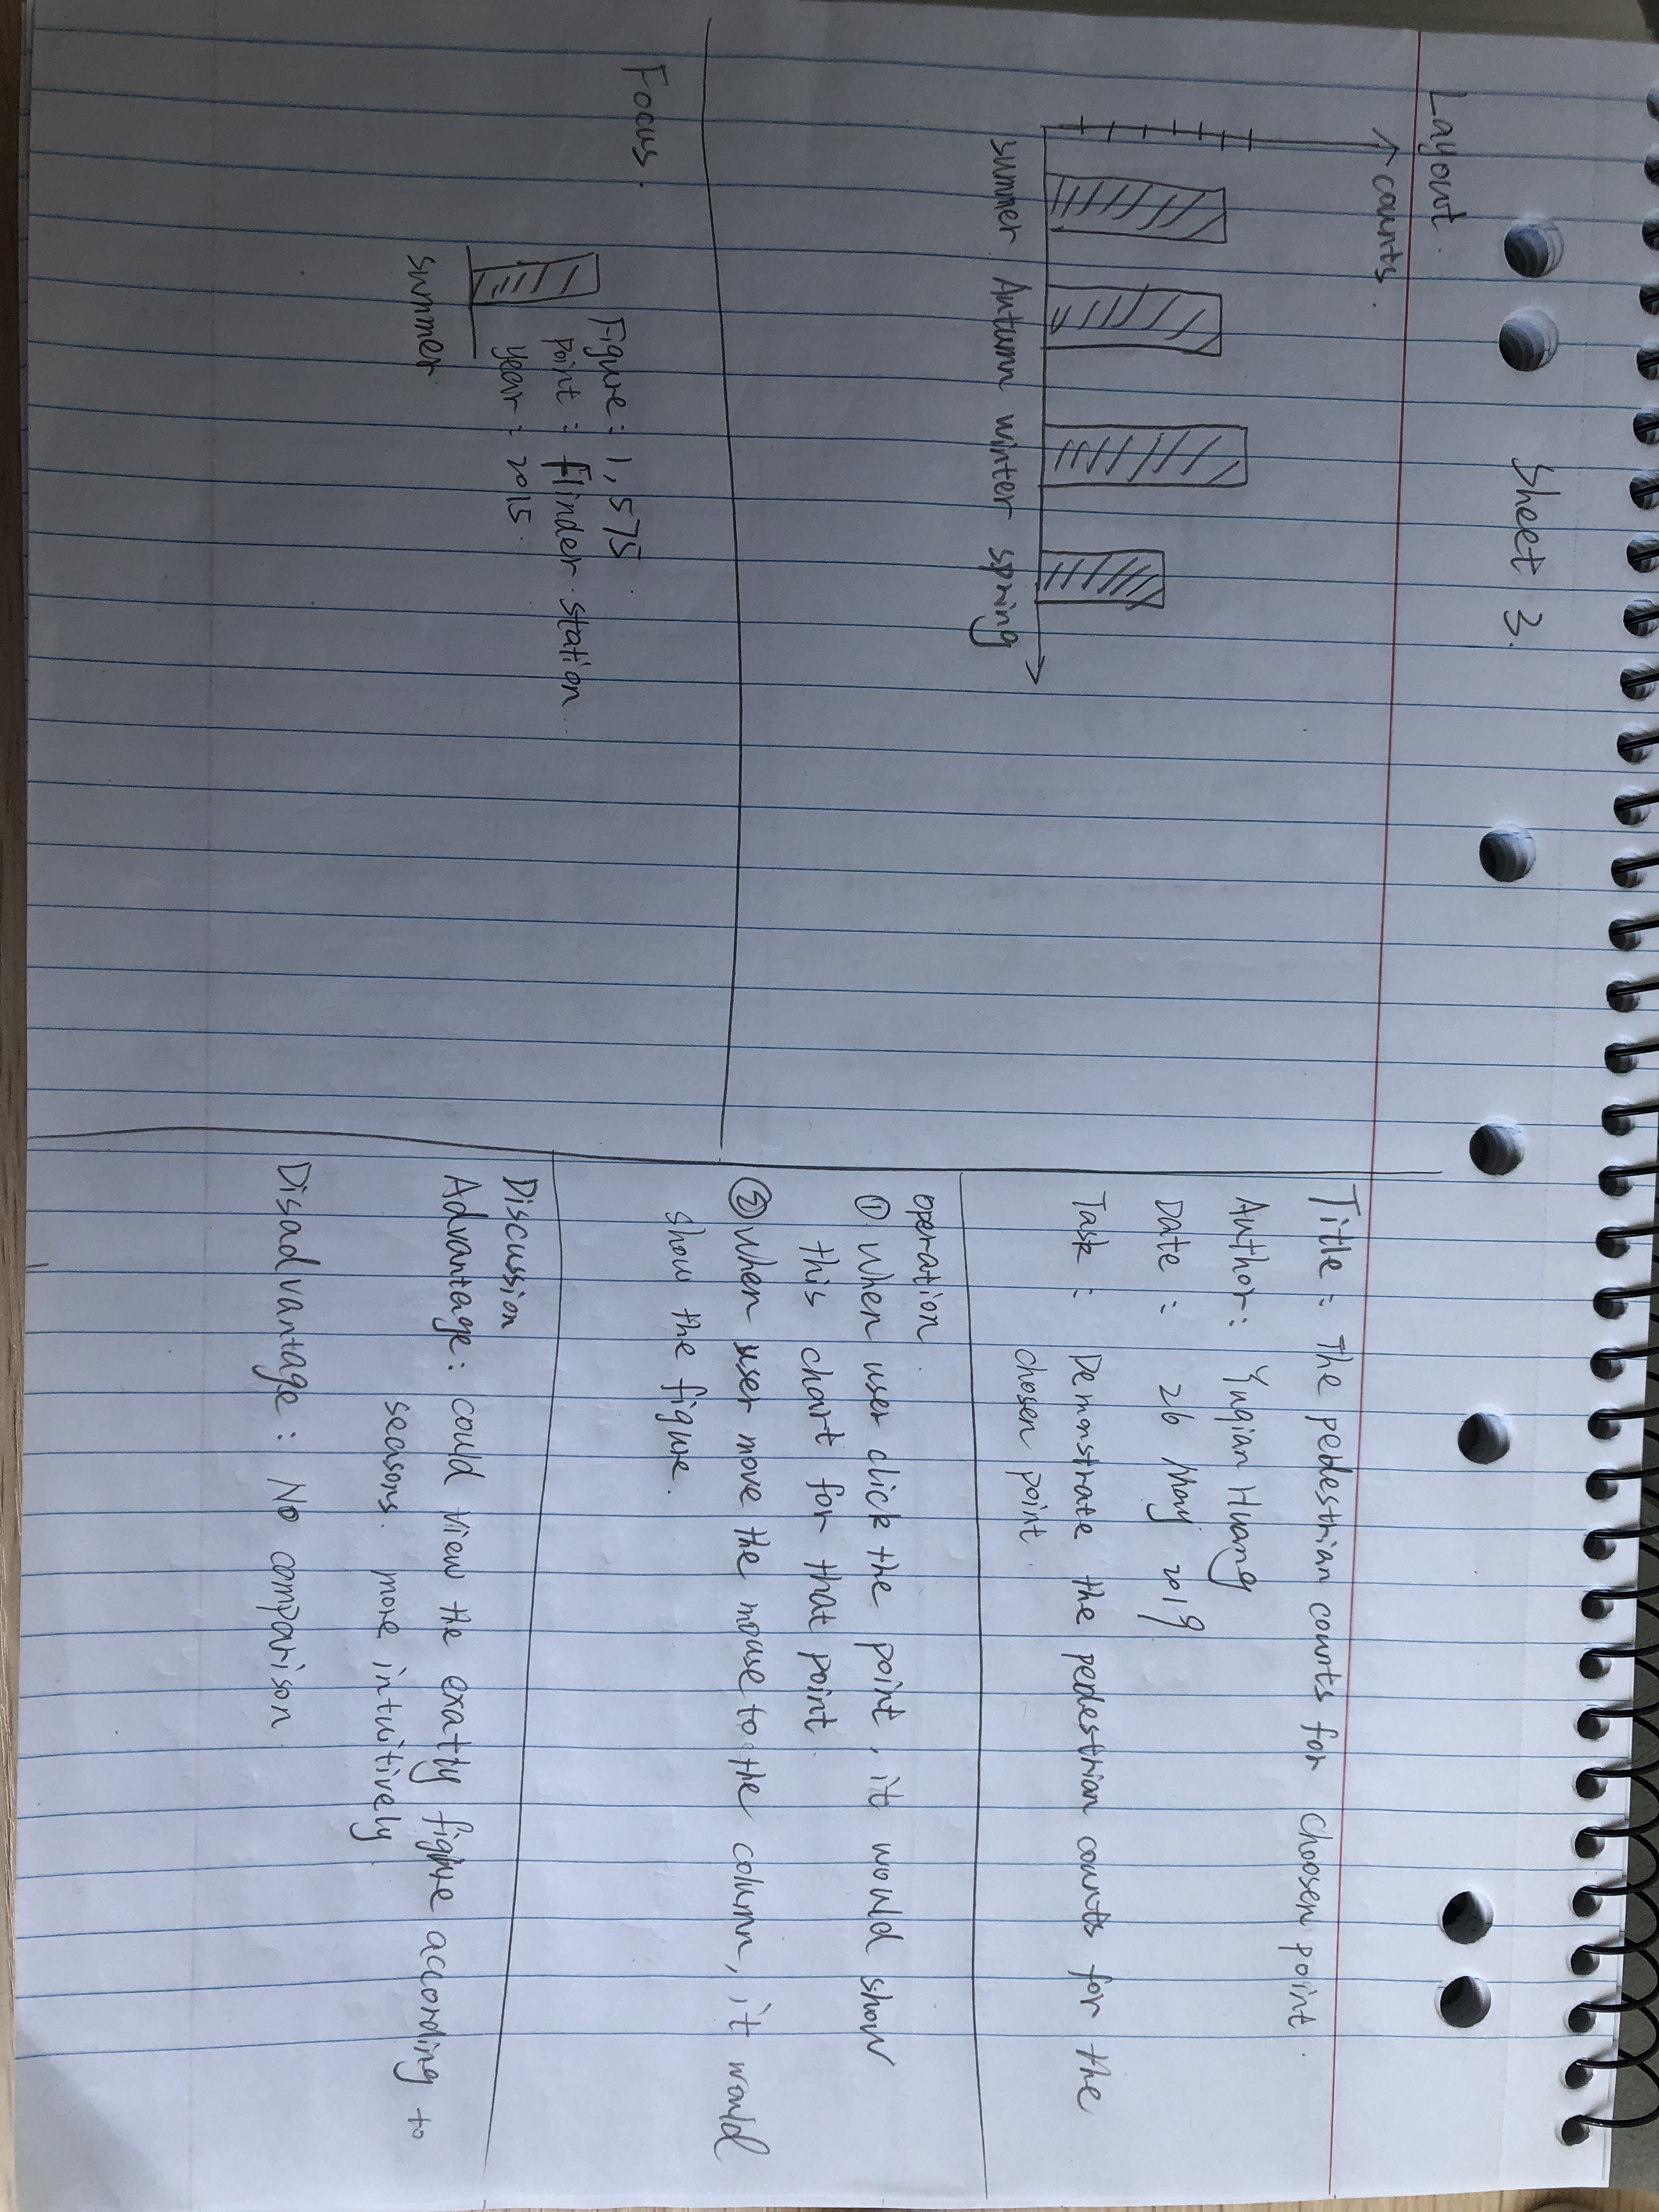 Sheet 3.
Layout.
counts.
summer Autumn winter spring
Focus.
Figure : 1,575.
Point : flinder station.
year : 2015.
summer
Title : The pedestrian counts for choosen point.
Author : Yuqian Huang
Date : 26 May 2019
Task : Demonstrate the pedestrian counts for the
chosen point.
operation.
① When user click the point, it would show
this chart for that point.
② When user move the mouse to the column, it would
show the figure.
Discussion
Advantage : could view the exatly figure according to
seasons. more intuitively
Disadvantage : No comparison.